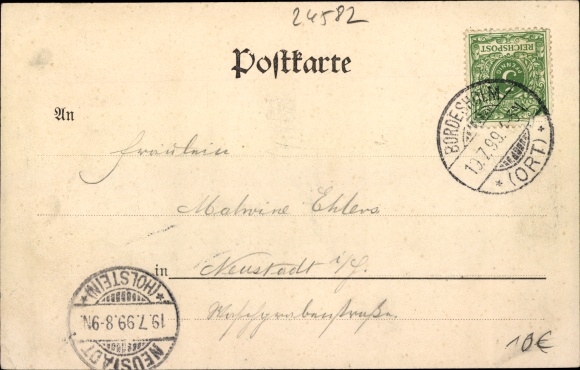 24582
Postkarte
REICHSPOST
5
BORDESHOLM
10.7.99.
*(ORT)*
An
Fräulein
Malwine Ehlers
in Neustadt i/H.
Waschgrabenstraße.
*(HOLSTEIN)*
19.7.99.8-9N.
NEUSTADT
10€